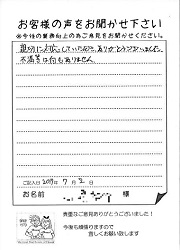 お客様の声をお聞かせ下さい
※今後の業務向上の為ご意見をお聞かせください。
親切に対応していただき、ありがとうございました。
不満等は何もありません。
ご記入日 2019年 7月 2日
お名前 様
貴重なご意見ありがとうございました！
今後も頑張りますので
宜しくお願い致します